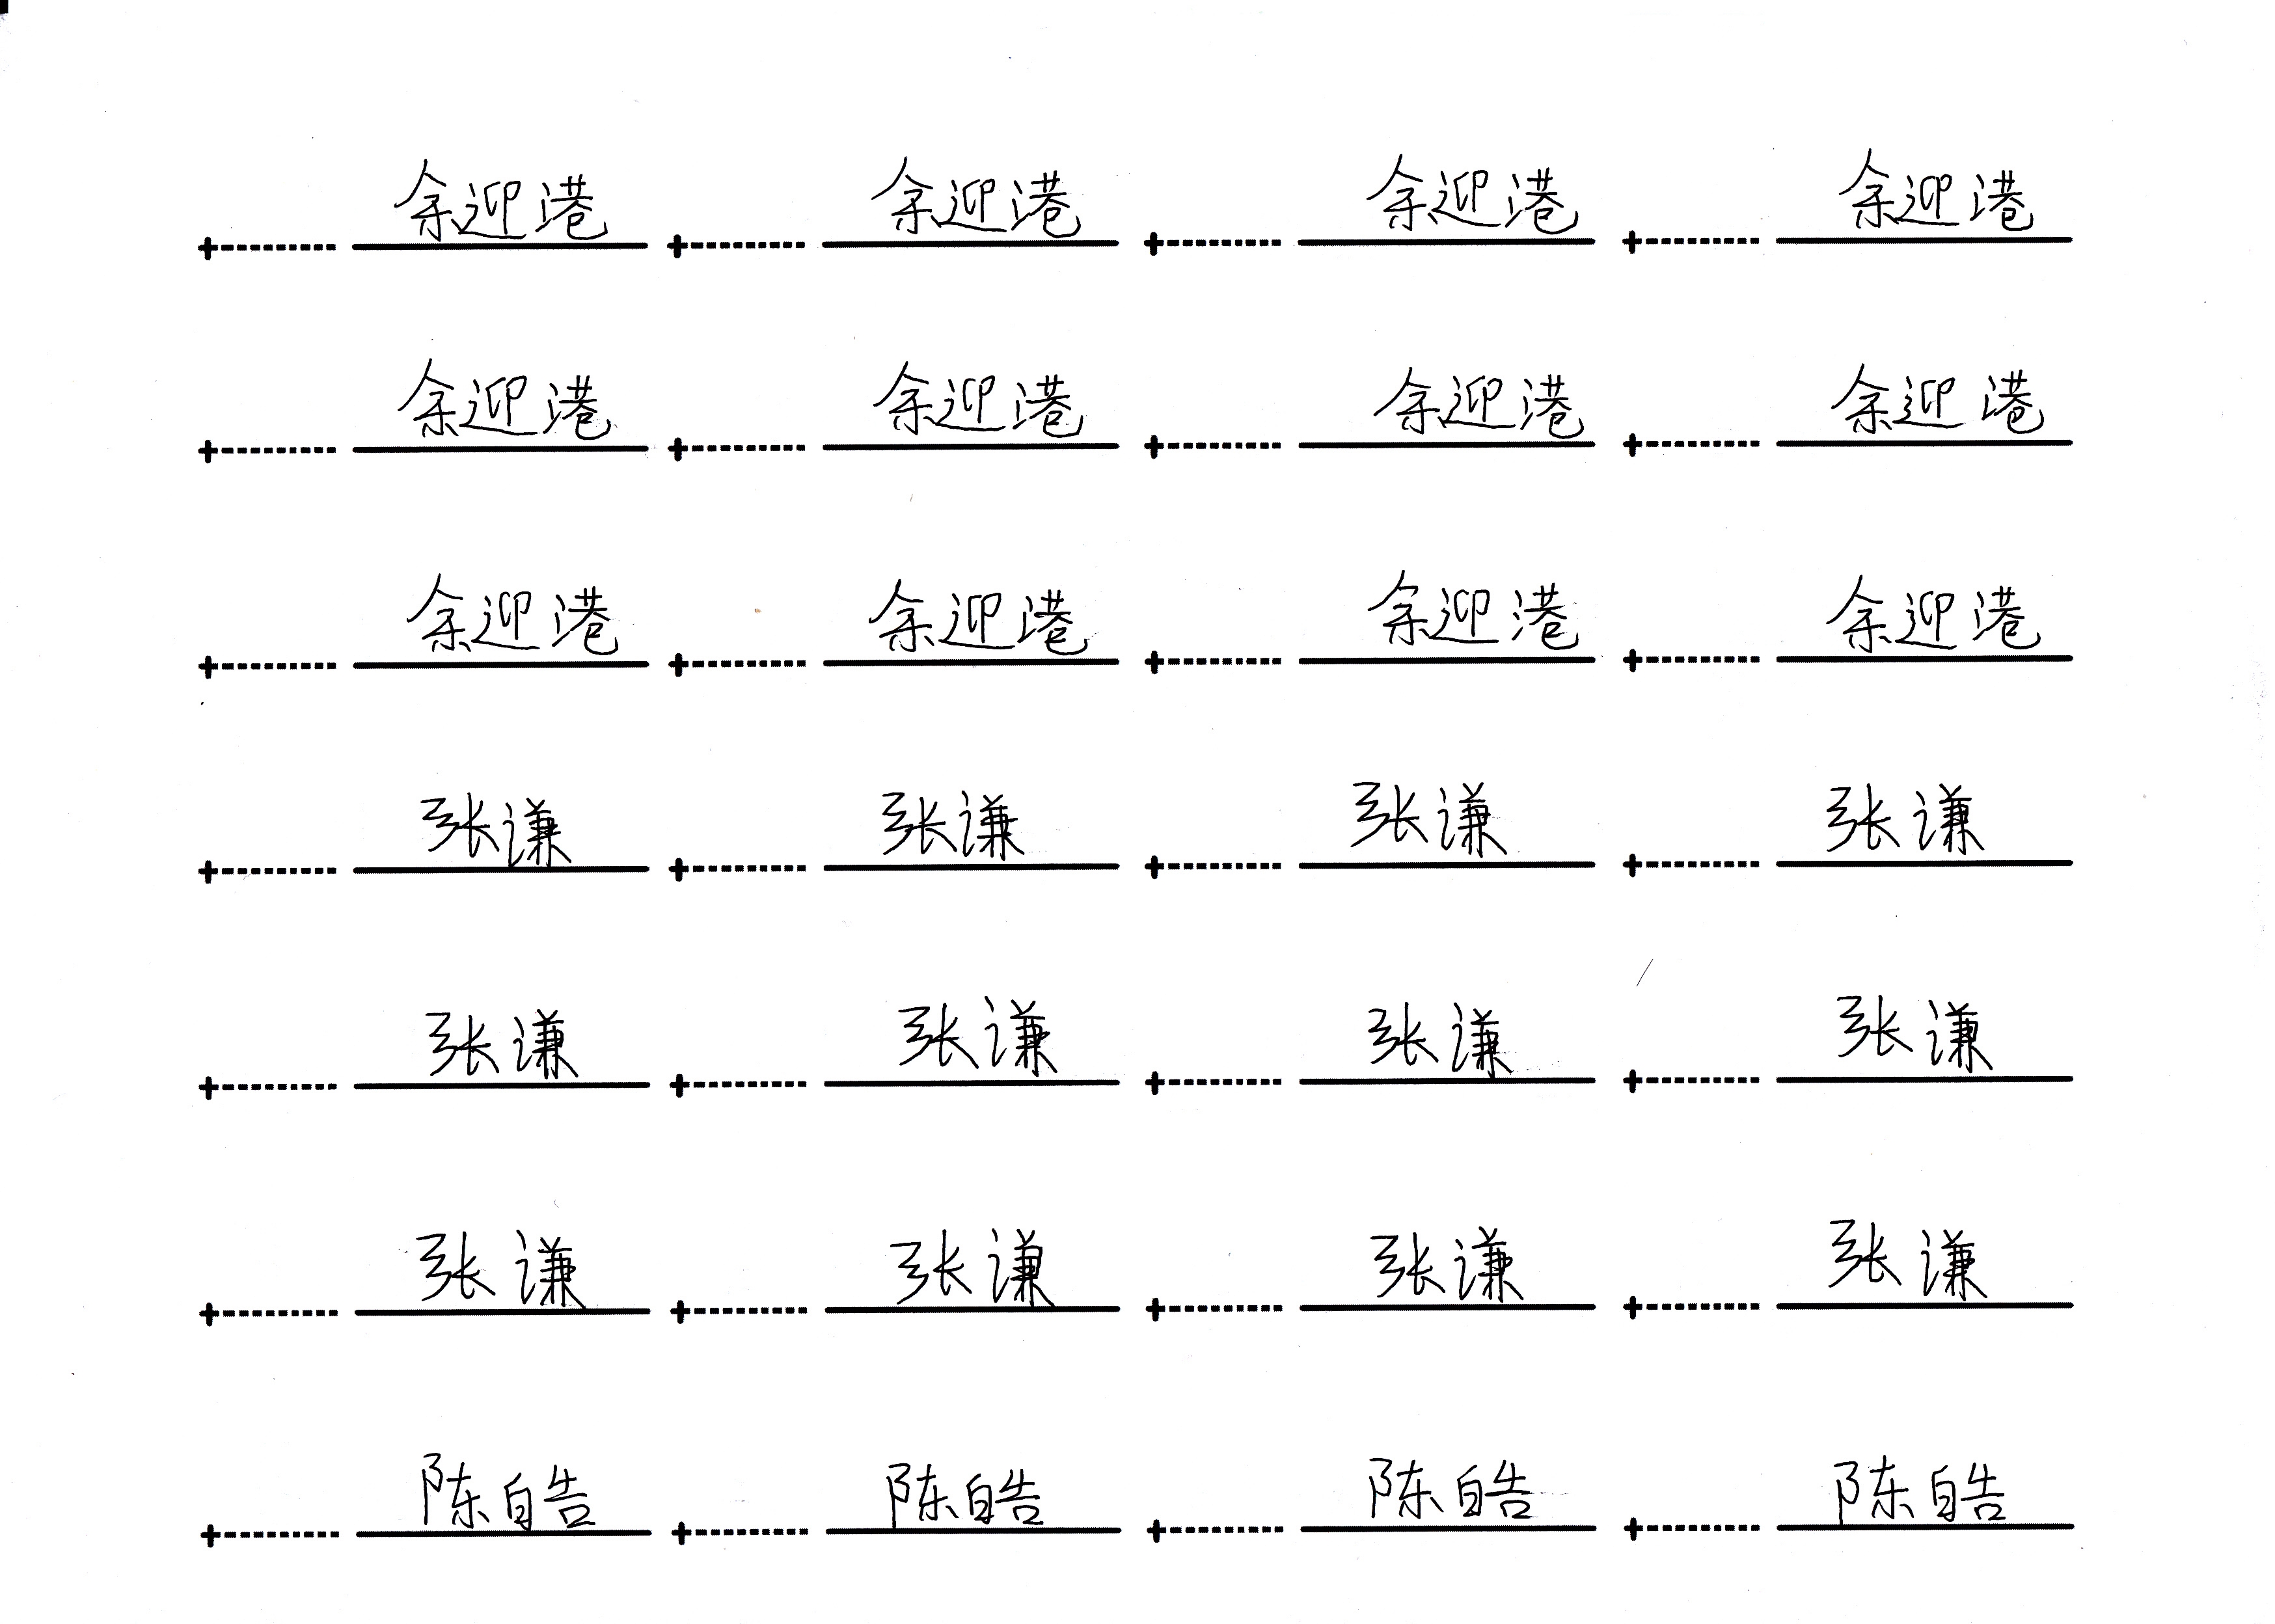 余迎港 余迎港 余迎港 余迎港
余迎港 余迎港 余迎港 余迎港
余迎港 余迎港 余迎港 余迎港
张谦 张谦 张谦 张谦
张谦 张谦 张谦 张谦
张谦 张谦 张谦 张谦
陈皓 陈皓 陈皓 陈皓